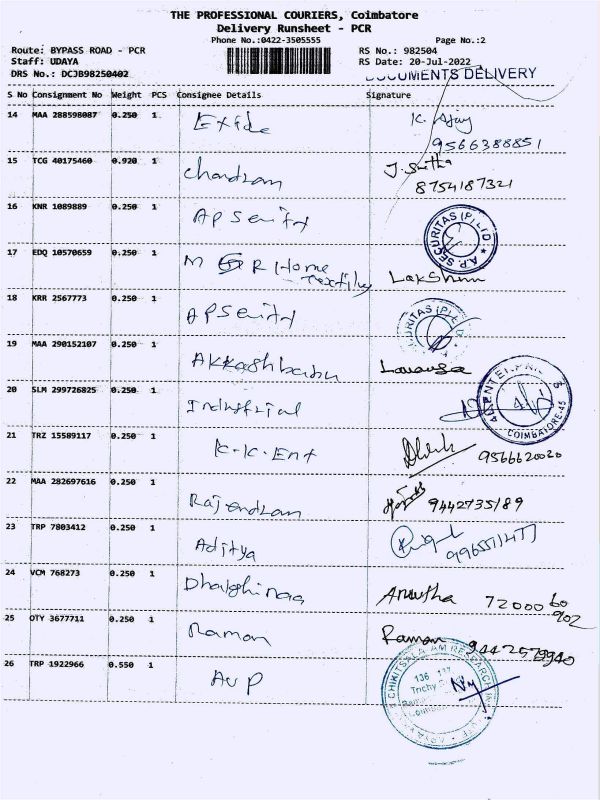 THE PROFESSIONAL COURIERS, Coimbatore
Delivery Runsheet - PCR
Phone No.:0422-3505555 Page No.:2
Route: BYPASS ROAD - PCR RS No.: 982504
Staff: UDAYA RS Date: 20-Jul-2022
DRS No.: DCJB98250402 DOCUMENTS DELIVERY
S No Consignment No Weight PCS Consignee Details Signature
14 MAA 288598087 0.250 1 Exide K. Ajay
9566388851
15 TCG 40175460 0.920 1 Chandram
8754187321
16 KNR 1089889 0.250 1 AP Secuity A.P. SECURITAS (P) LTD
17 EDQ 10570659 0.250 1 M GR Home Lakshmi
Textiles
18 KRR 2567773 0.250 1 AP Secuity
19 MAA 290152107 0.250 1 Akkashbabu
20 SLM 299726825 0.250 1 Industrial COIMBATORE-45
21 TRZ 15589117 0.250 1 K.K. Ent 9566620020
22 MAA 282697616 0.250 1 Rajendram 9442735189
23 TRP 7803412 0.250 1 Aditya
24 VCM 768273 0.250 1 Anutha 72000 60
902
25 OTY 3677711 0.250 1 Raman Raman
26 TRP 1922966 0.550 1 AVP
136 137
Trichy